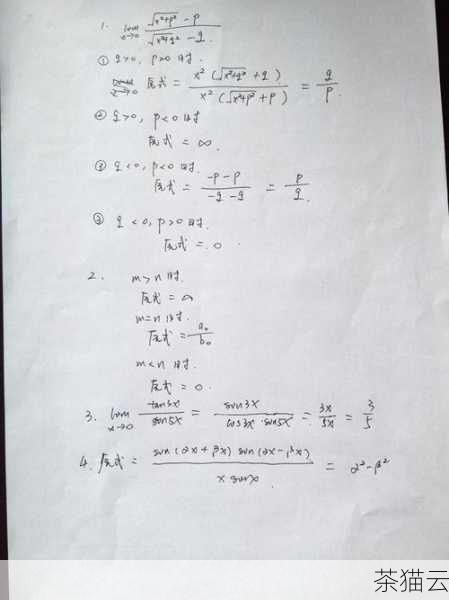 1. lim x→0 (√(x²+p²) - p) / (√(x²+q²) - q)
① q>0, p>0 时.
原式 = x²(√(x²+q²) + q) / x²(√(x²+p²) + p) = q/p.
② q>0, p<0 时
原式 = ∞.
③ q<0, p<0 时.
原式 = (-p-p)/(-q-q) = p/q.
q<0, p>0 时.
原式 = 0.
2. m>n 时.
原式 = ∞
m=n 时.
原式 = a₀/b₀
m<n 时.
原式 = 0.
3. lim x→0 tan3x/sin5x = sin3x/(cos3x·sin5x) = 3x/5x = 3/5
4. 原式 = sin(αx+βx) sin(αx-βx) / (x sinx) = α²-β²
茶猫云